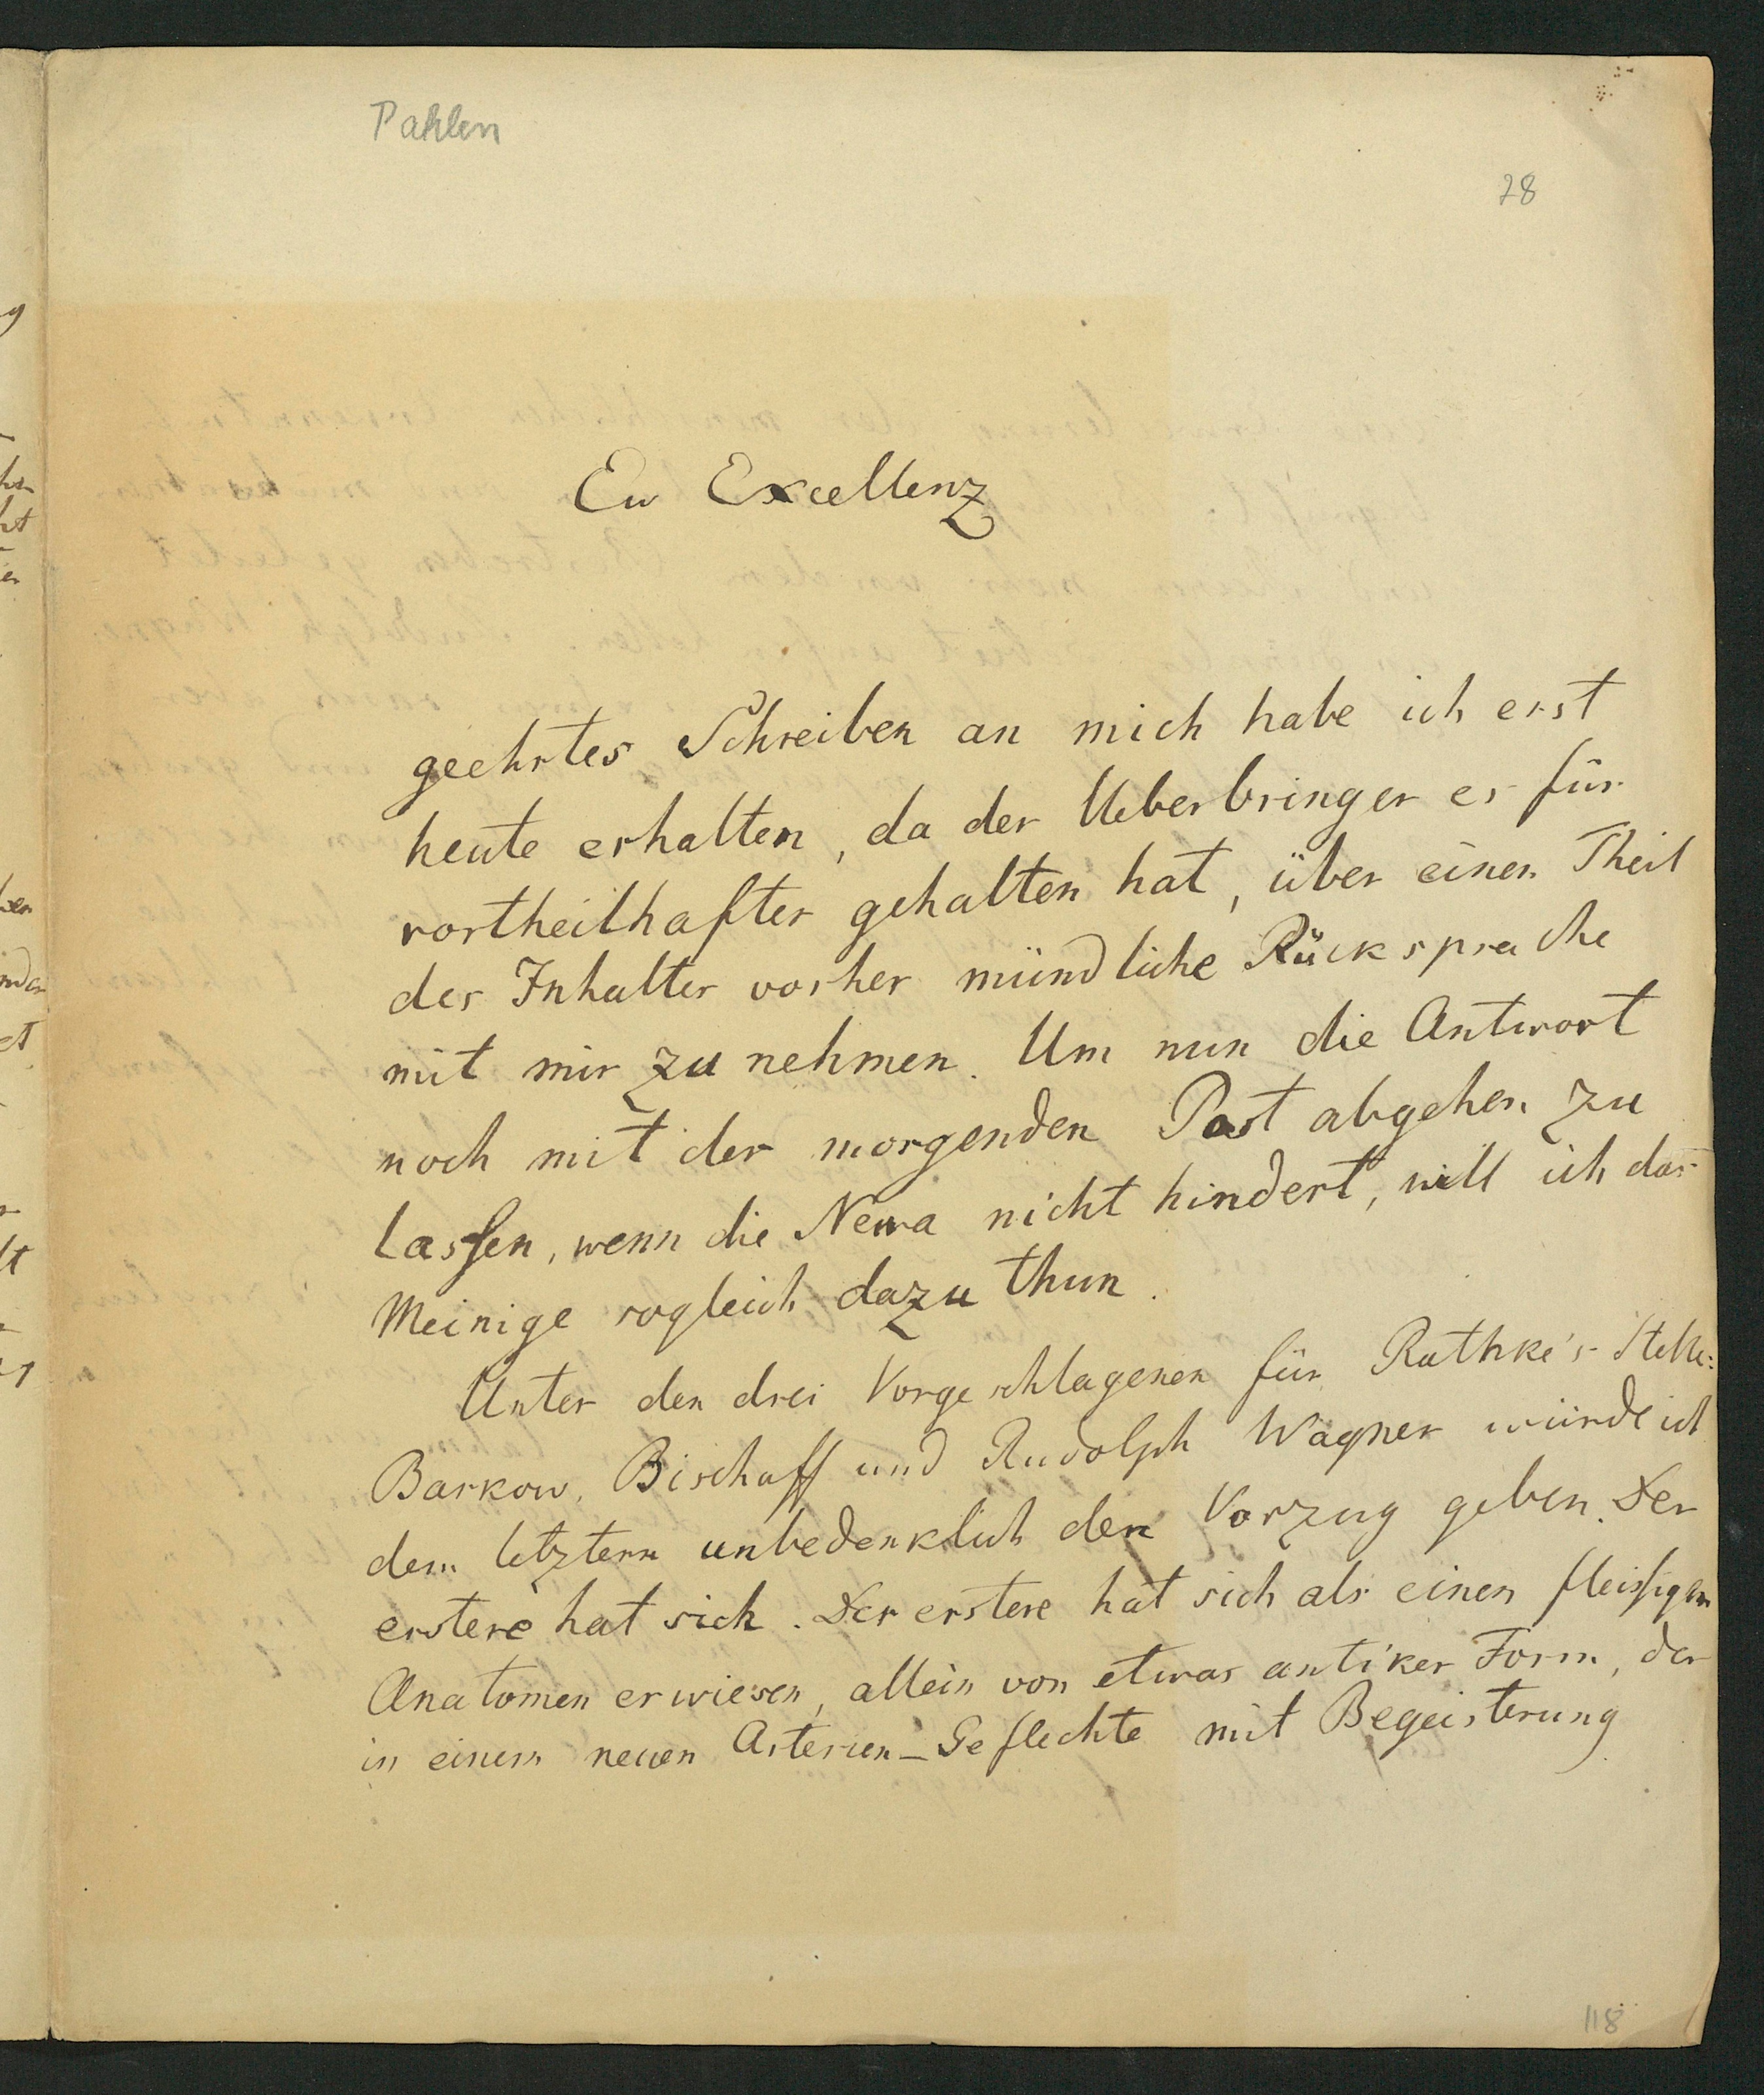 Pahlen
28
Ew Excellenz
geehrtes Schreiben an mich habe ich erst
heute erhalten, da der Ueberbringer es für
vortheilhafter gehalten hat, über einen Theil
des Inhaltes vorher mündliche Rücksprache
mit mir zu nehmen. Um nun die Antwort
noch mit der morgenden Post abgehen zu
lassen, wenn die Newa nicht hindert, will ich das
Meinige sogleich dazu thun.
Unter den drei Vorgeschlagenen für Rathke's Stelle:
Barkow, Bischoff und Rudolph Wagner würde ich
dem letztern unbedenklich den Vorzug geben. Der
erstere hat sich. Der erstere hat sich als einen fleissigen
Anatomen erwiesen, allein von etwas antiker Form, der
in einem neuen Arterien-Geflechte mit Begeisterung
118